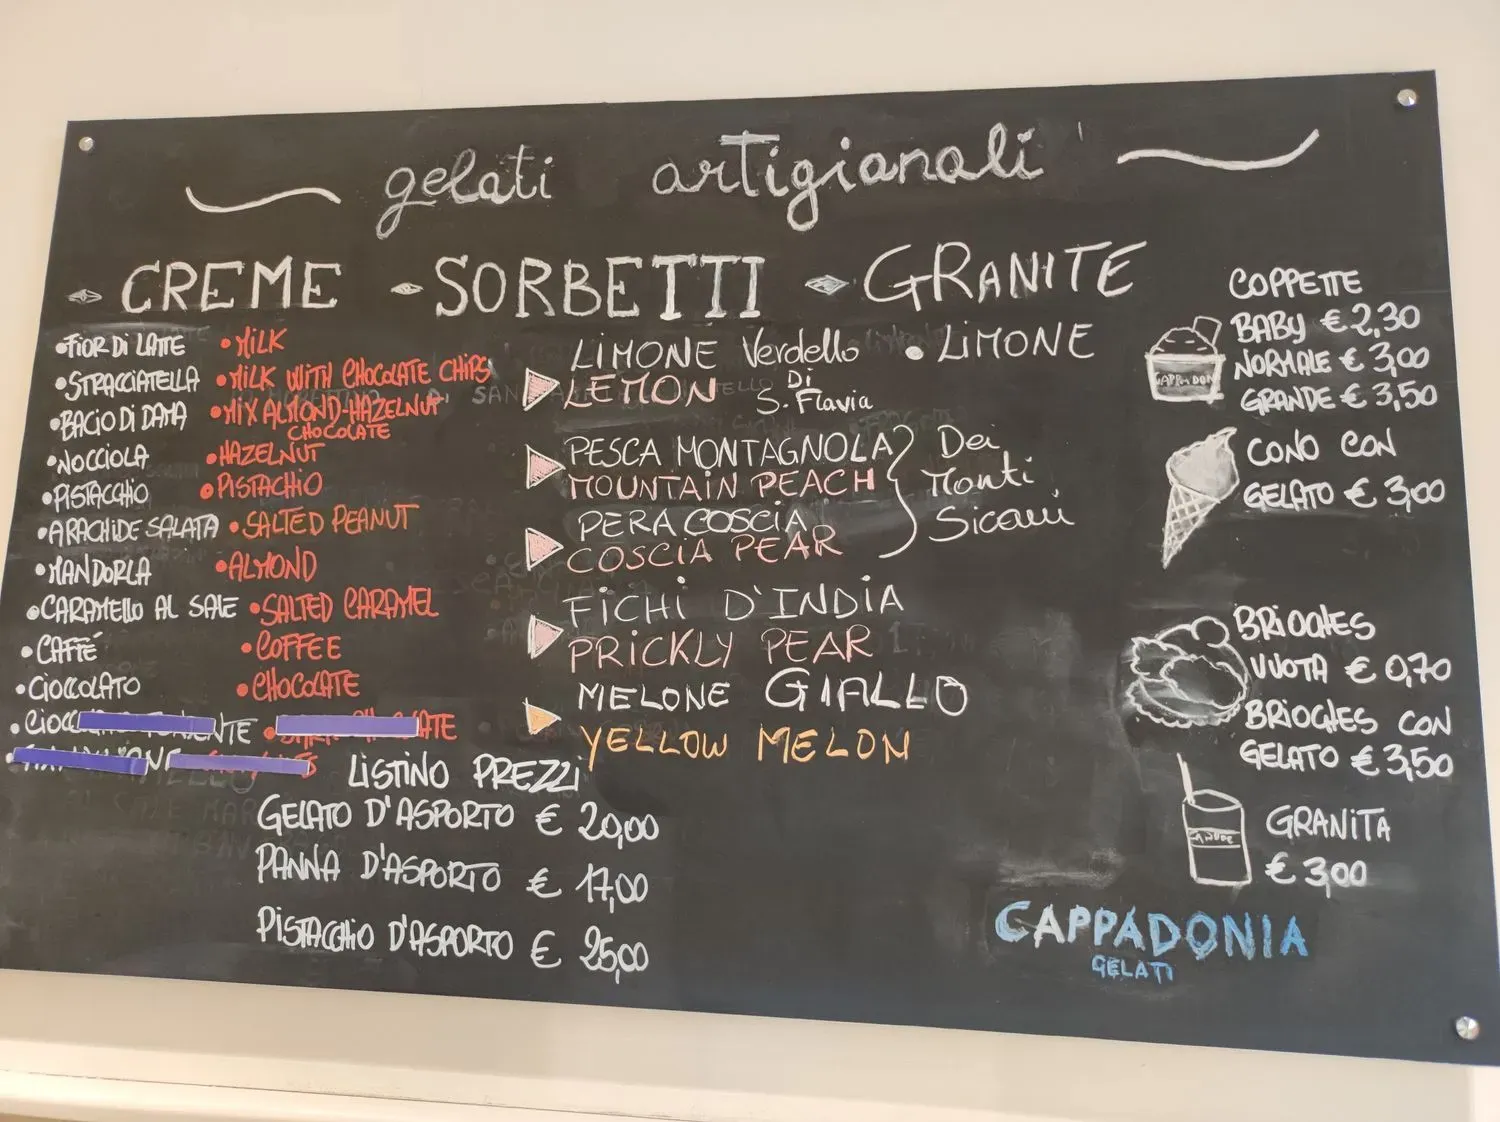 gelati artigianali
CREME - SORBETTI GRANITE
•FIOR DI LATTE •MILK
•STRACCIATELLA •MILK WITH CHOCOLATE CHIPS
•BACIO DI DAMA •MIX ALMOND-HAZELNUT
CHOCOLATE
•NOCCIOLA •HAZELNUT
•PISTACCHIO •PISTACHIO
•ARACHIDE SALATA •SALTED PEANUT
•MANDORLA •ALMOND
•CARAMELLO AL SALE •SALTED CARAMEL
•CAFFÉ •COFFEE
•CIOCCOLATO •CHOCOLATE
LIMONE Verdello
LEMON Di
S. Flavia
PESCA MONTAGNOLA
MOUNTAIN PEACH
PERA COSCIA
COSCIA PEAR
Dei
Monti
Sicani
FICHI D'INDIA
PRICKLY PEAR
MELONE GIALLO
YELLOW MELON
• LIMONE
COPPETTE
BABY € 2,30
NORMALE € 3,00
GRANDE € 3,50
CONO CON
GELATO € 3,00
BRIOCHES
VUOTA € 0,70
BRIOCHES CON
GELATO € 3,50
GRANITA
€ 3,00
LISTINO PREZZI
GELATO D'ASPORTO € 20,00
PANNA D'ASPORTO € 17,00
PISTACCHIO D'ASPORTO € 25,00
CAPPADONIA
GELATI